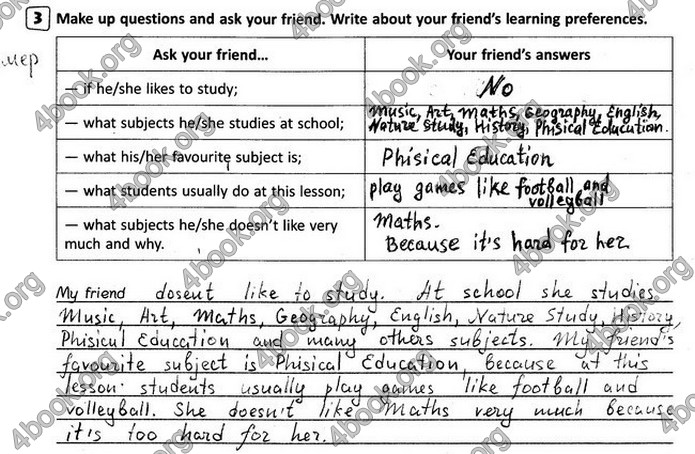 3 Make up questions and ask your friend. Write about your friend's learning preferences.
мер
Ask your friend... Your friend's answers
– if he/she likes to study; No
– what subjects he/she studies at school; Music, Art, Maths, Geography, English,
Nature Study, History, Phisical Education.
– what his/her favourite subject is; Phisical Education
– what students usually do at this lesson; play games like football and
volleyball
– what subjects he/she doesn't like very Maths.
much and why. Because it's hard for her.
My friend dosent like to study. At school she studies
Music, Art, Maths, Geography, English, Nature Study, History,
Phisical Education and many others subjects. My friend's
favourite subject is Phisical Education, because at this
lesson students usually play games like football and
volleyball. She doesn't like Maths very much because
it's too hard for her.
4book.org